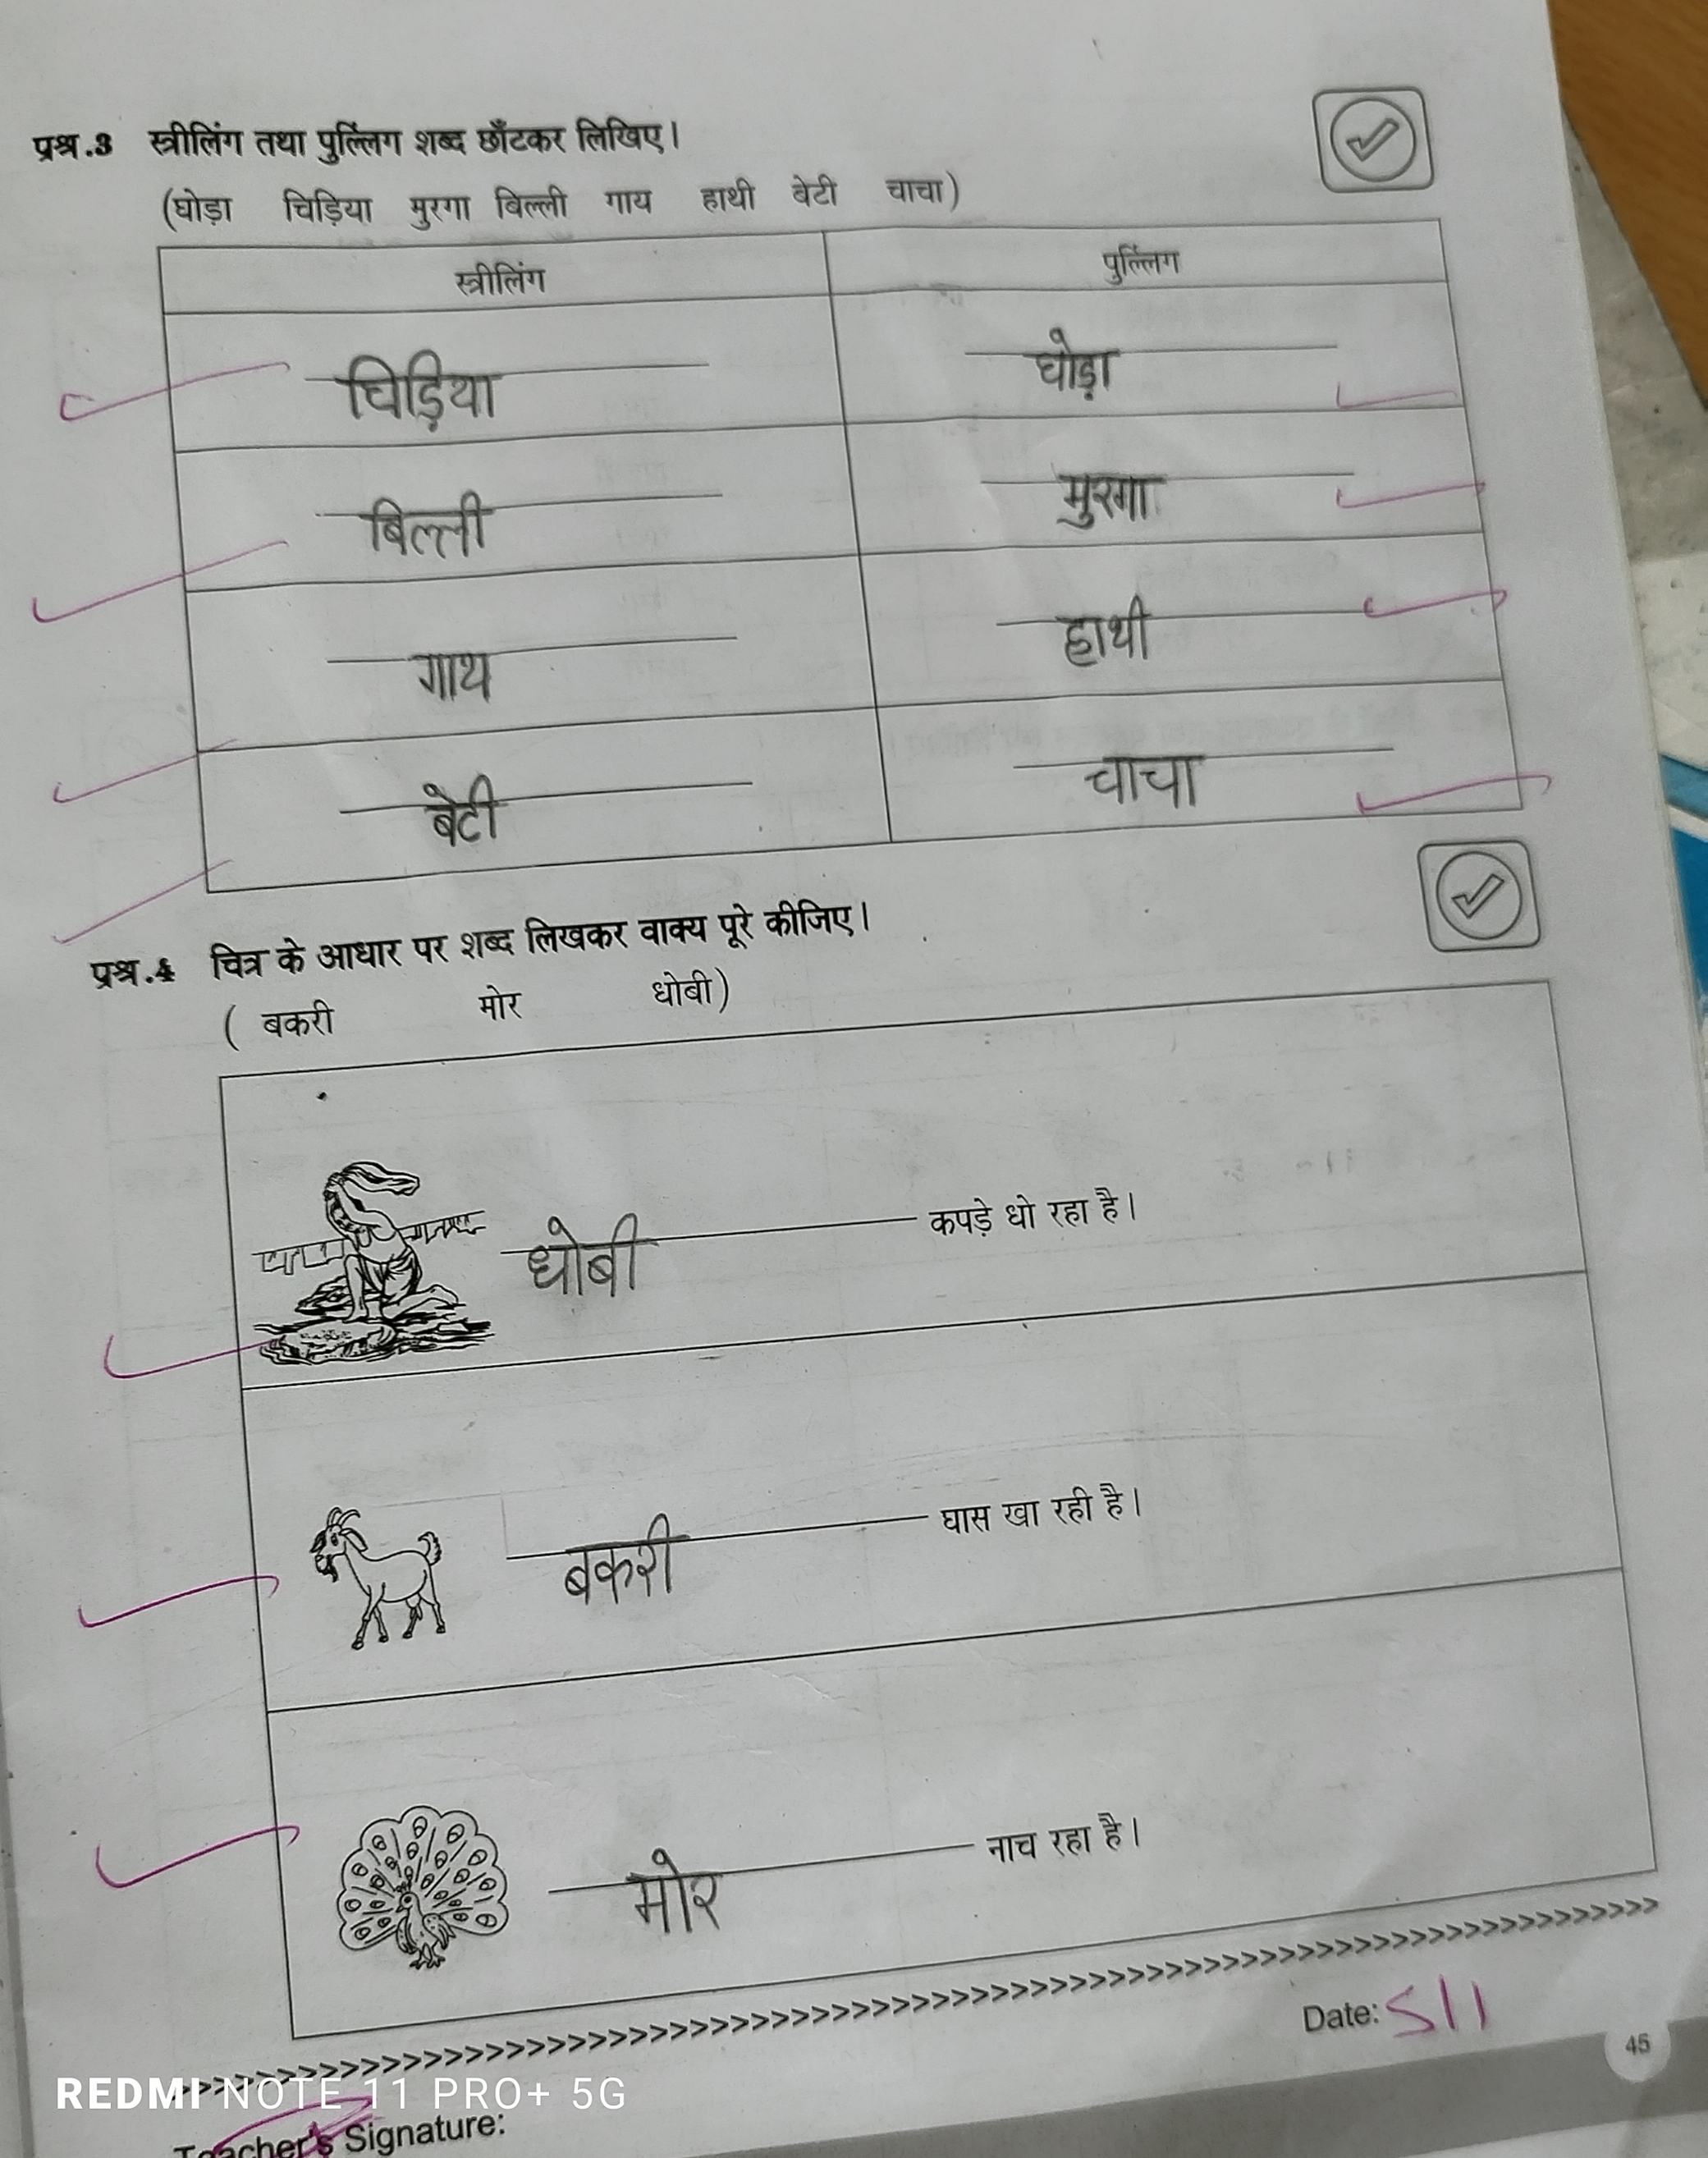 प्रश्न.3 स्त्रीलिंग तथा पुल्लिंग शब्द छाँटकर लिखिए।
(घोड़ा चिड़िया मुरगा बिल्ली गाय हाथी बेटी चाचा)
स्त्रीलिंग पुल्लिंग
चिड़िया घोड़ा
बिल्ली मुरगा
गाय हाथी
बेटी चाचा
प्रश्न.4 चित्र के आधार पर शब्द लिखकर वाक्य पूरे कीजिए।
( बकरी मोर धोबी)
धोबी कपड़े धो रहा है।
बकरी घास खा रही है।
मोर नाच रहा है।
Date: 5/1
45
REDMI NOTE 11 PRO+ 5G
Teacher's Signature: